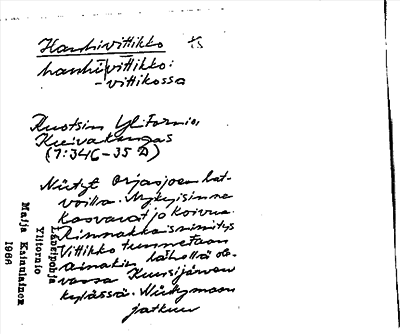 Hanhivittikko ts
hanhi|vittikko:
-vittikossa
Ruotsin Ylitornio,
Kuivakangas
(7:346-35 D)
Niityt Orjasjoen lat-
voilla. Nykyisinne
kasvavat jo koivua.
Rinnakkaisnimitys
Vittikko tunnetaan
ainakin lähellä ole-
vassa Kuusijärven
kylässä. Niittymaan
jatkuu
Länsipohja
Ylitornio
Maija Kainulainen
1966